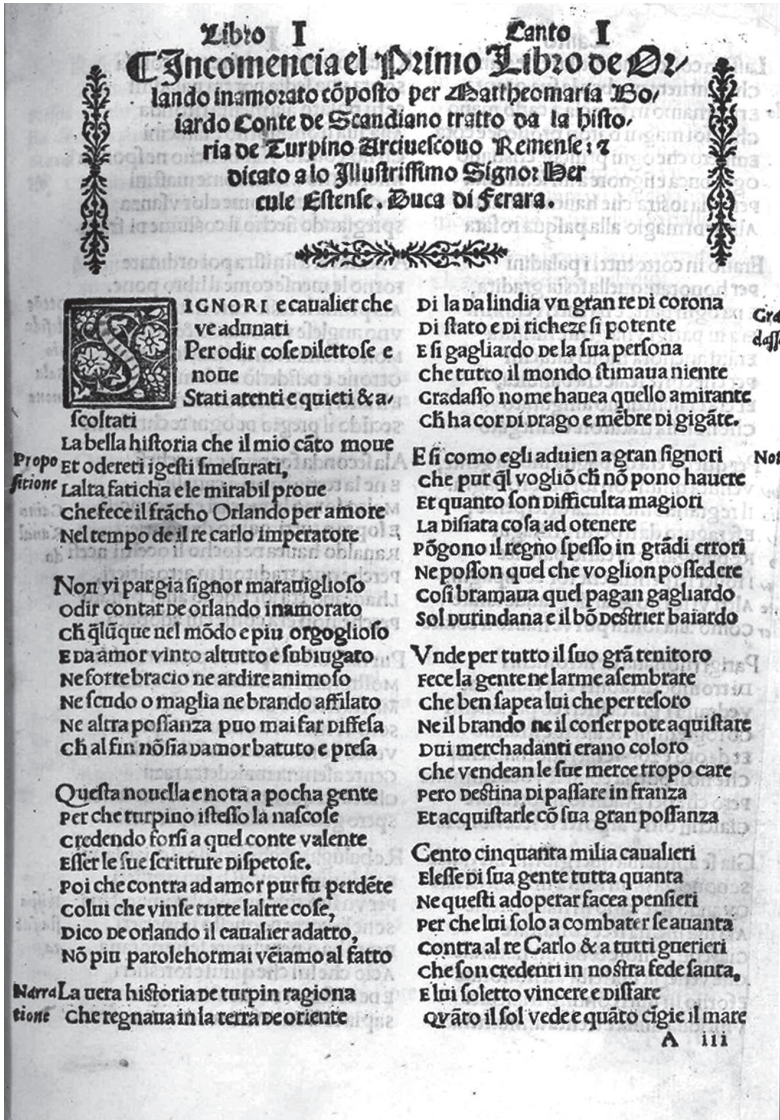 Libro I Canto I
¶Incomencia el Primo Libro de Or/
lando inamorato cõposto per Mattheomaria Bo/
iardo Conte de Scandiano tratto da la histo/
ria de Turpino Arciuescouo Remense: ⁊
dicato a lo Illustrissimo Signor Her
cule Estense. Duca di Ferara.
SIGNORI e caualier che
ve adunati
Per odir cose dilettose e
noue
Stati atenti e quieti & a/
scoltati
La bella historia che il mio cãto moue
Propo
Et odereti i gesti smesurati,
sitione
Lalta faticha e le mirabil proue
Che fece il frãcho Orlando per amore
Nel tempo de il re carlo imperatore
Non vi par gia signor marauiglioso
Odir contar de orlando inamorato
Ch̃ q̃lũque nel mõdo e piu orgoglioso
E da amor vinto al tutto e subiugato
Ne forte bracio ne ardire animoso
Ne scudo o maglia ne brando affilato
Ne altra possanza puo mai far diffesa
Ch̃ al fin nõ sia damor batuto e presa
Questa nouella e nota a pocha gente
Per che turpino istesso la nascose
Credendo forsi a quel conte valente
Esser le sue scritture dispetose.
Poi che contra ad amor pur fu perdẽte
Colui che vinse tutte laltre cose,
Dico de orlando il caualier adatto,
Nõ piu parole hormai vẽiamo al fatto
Narra
La uera historia de turpin ragiona
tione
Che regnaua in la terra de oriente
Di la da lindia vn gran re di corona
Gra
Di stato e di richeze si potente
dass
E si gagliardo de la sua persona
Che tutto il mondo stimaua niente
Gradasso nome hauea quello amirante
Ch̃ ha cor di drago e mẽbre di gigãte.
E si come egli aduien a gran signori
Not
Che pur q̃l vogliõ ch̃ nõ pono hauere
Et quanto son difficulta magiori
La disiata cosa ad otenere
Põgono il regno spesso in grãdi errori
Ne posson quel che voglion possedere
Cosi bramaua quel pagan gagliardo
Sol durindana e il bõ destrier baiardo
Vnde per tutto il suo grã tenitoro
Fece la gente ne larme asembrare
Che ben sapea lui che per tesoro
Ne il brando ne il corser pote aquistare
Dui merchadanti erano coloro
Che vendean le sue merce tropo care
Pero destina di passare in franza
Et acquistarle cõ sua gran possanza
Cento cinquanta milia caualieri
Elesse di sua gente tutta quanta
Ne questi adoperar facea pensieri
Per che lui solo a combater se auanta
Contra al re Carlo & a tutti guerieri
Che son credenti in nostra fede santa.
E lui soletto vincere e disfare
Quãto il sol vede e quãto cĩgie il mare
A iii